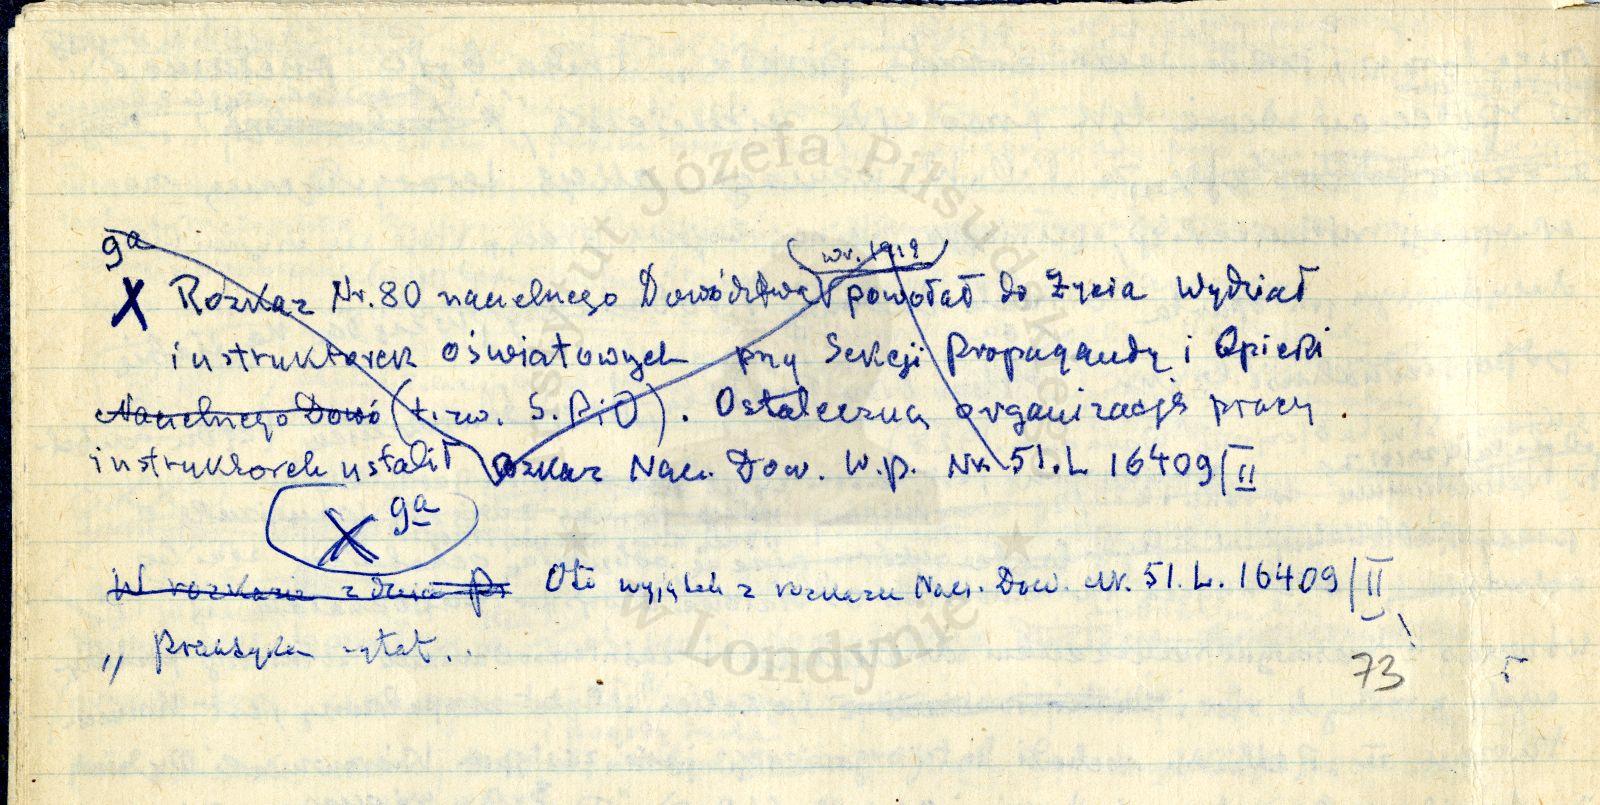 9a
(w r. 1919)
X Rozkaz Nr. 80 naczelnego Dowództwa powołał do życia Wydział
instruktorek oświatowych przy Sekcji Propagandy i Opieki
Naczelnego Dowó (t. zw. S. P i O). Ostateczną organizację pracy
instruktorek ustalił rozkaz Nacz. Dow. W.P. Nr. 51. L 16409/II
X 9a
W rozkazie z dnia Oto wyjątek z rozkazu Nacz. Dow. Nr. 51. L. 16409/II
73
Instytut Józefa Piłsudskiego
w Londynie